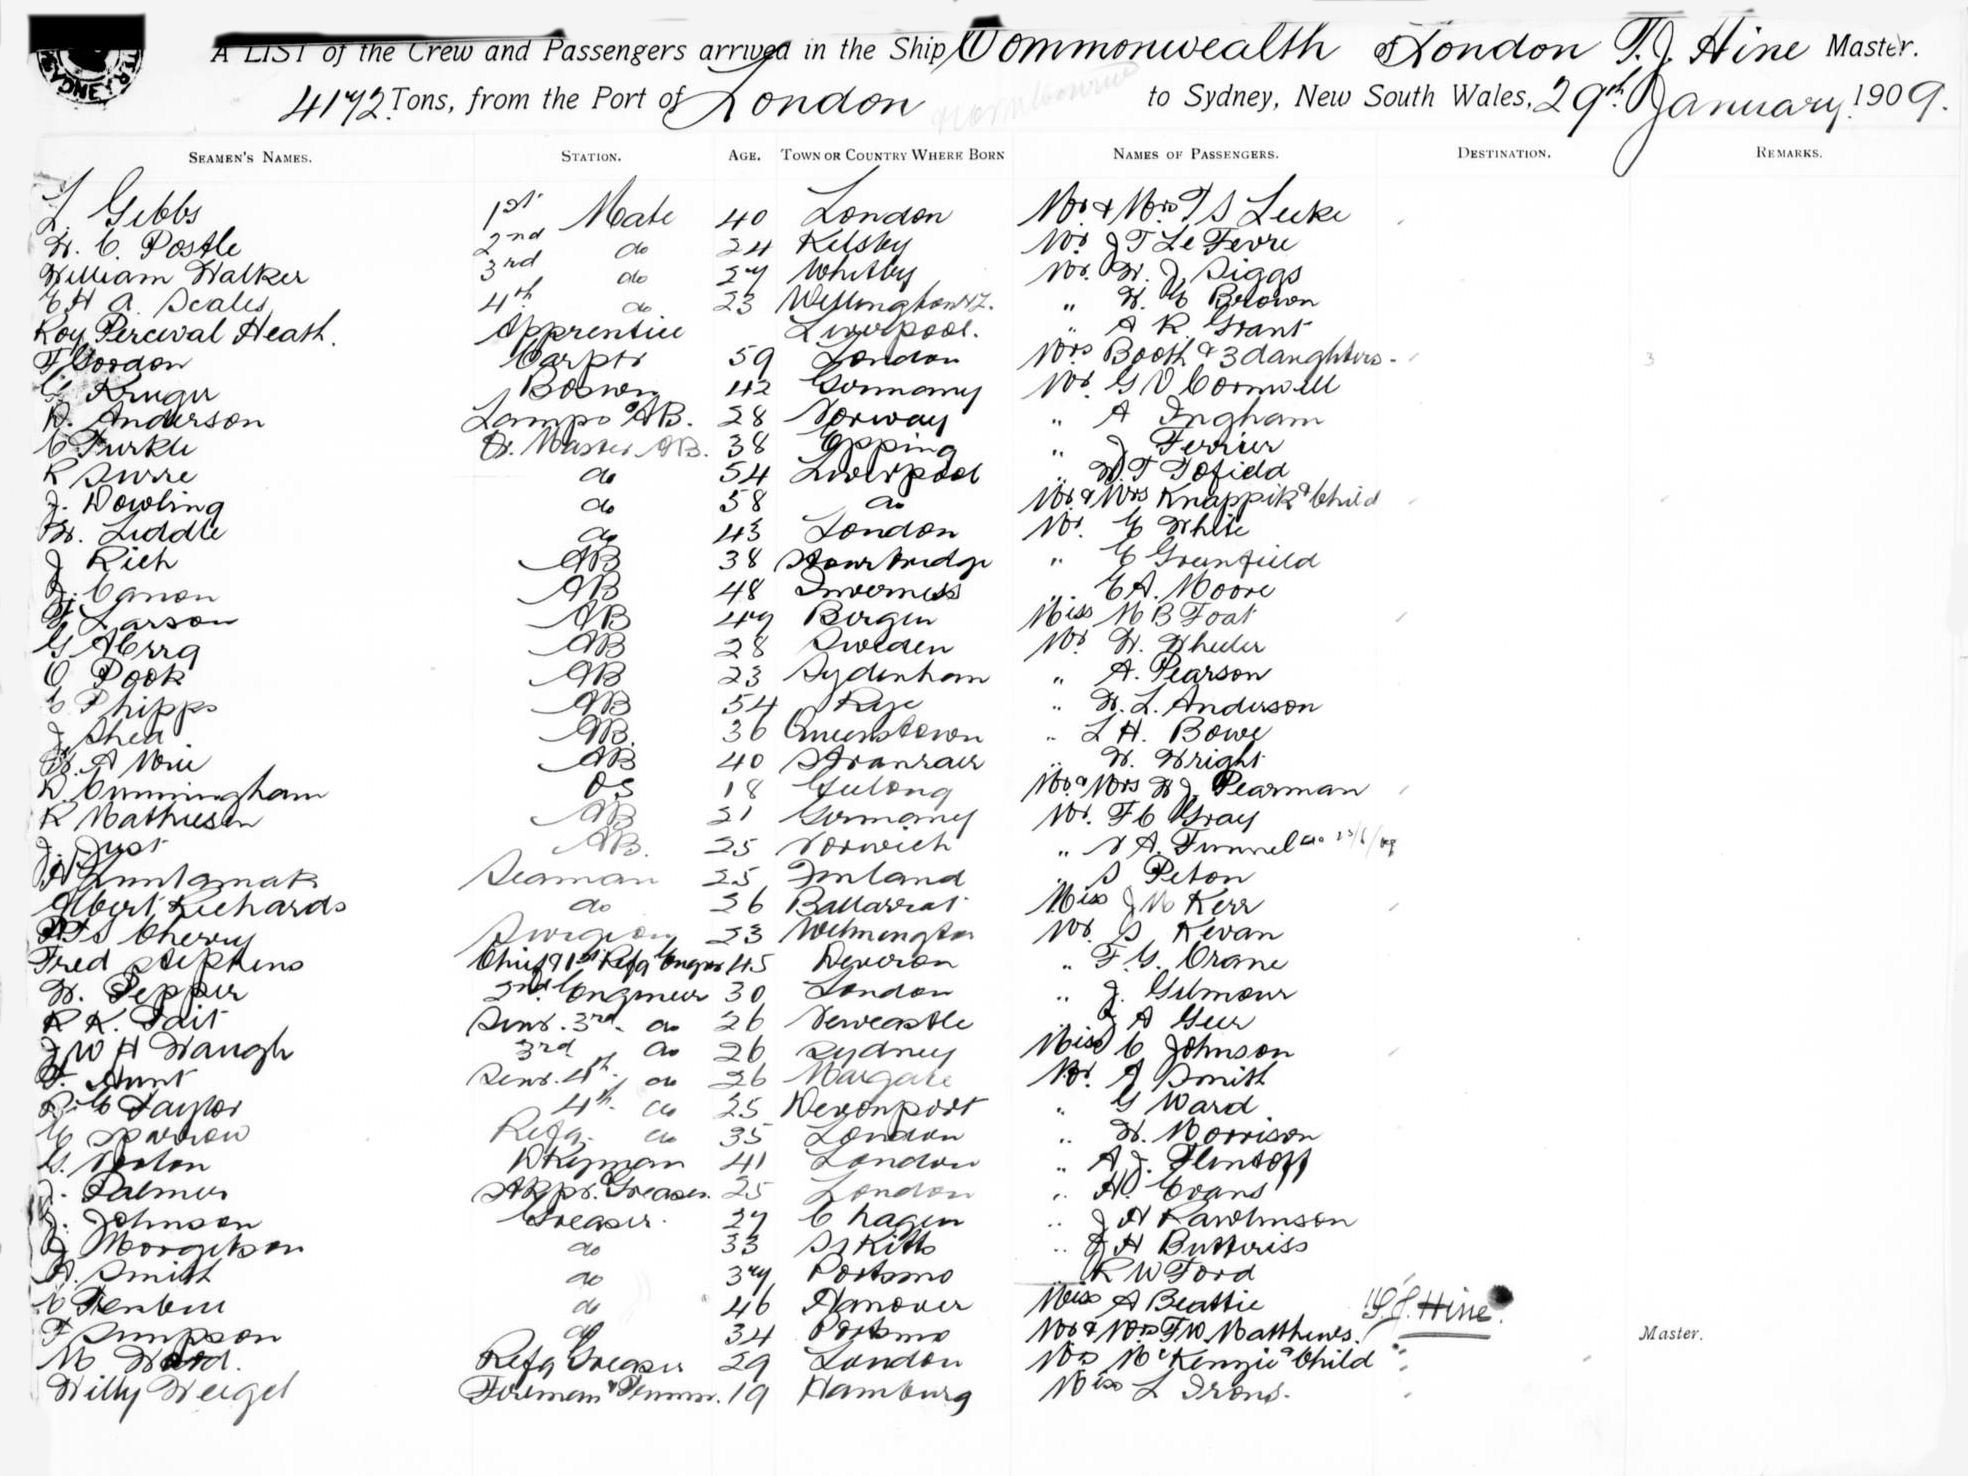 A LIST of the Crew and Passengers arrived in the Ship Commonwealth of London T. J. Hine Master.
4172 Tons, from the Port of London to Sydney, New South Wales, 29th January 1909.
SEAMEN'S NAMES. STATION. AGE. TOWN OR COUNTRY WHERE BORN NAMES OF PASSENGERS. DESTINATION. REMARKS.
L. Gibbs 1st Mate 40 London Mr & Mrs T S Luke
W. C. Postle 2nd do 24 Kelsby Mr J T Le Fevre
William Walker 3rd do 27 Whitby Mr. W. J. Siggs
E H A. Scales 4th do 23 Wellington NZ. " W. E Brown
Roy Percival Heath. Apprentice Liverpool. " A R. Grant
F Gordon Carptr 59 London Mrs Booth & 3 daughters. 3
G. Kruger Bosun 42 Germany Mr. G V Cornwell
R. Anderson Lamps & AB. 28 Norway " A Ingham
C Turkle Qr. Master AB. 38 Epping " J Ferrier
R Surre do 54 Liverpool " W. T Tofield
J. Dowling do 58 do Mr & Mrs Knappik & Child
W. Liddle do 43 London Mr. E White
J Rich AB 38 Stourbridge " E Greenfield
J. Canon AB 48 Inverness " E A. Moore
F. Larson AB 47 Bergen Miss M B Foat
G AB 28 Sweden Mr W. Wheeler
O Pook AB 23 Sydenham " A. Pearson
C Phipps AB 54 Rye " W. L. Anderson
J Shea AB. 36 Queenstown " L H. Bowe
W. A AB 40 Stranraer " W. Wright
D. Cunningham OS 18 Geelong Mr & Mrs W J. Pearman
R Mathiesen AB 21 Germany Mr. F C Gray
J. Just AB. 25 Norwich " V A. Funnel
A Seaman 25 Finland " S Peton
Albert Richards do 26 Ballarat Miss J M Kerr
Cherry Surgeon 23 Wilmington Mr. S Kevan
Fred Stephens Chief & 1st Refg Engnr 45 Deveron " F. G. Crane
W. Pepper 2nd Engineer 30 London " J. Gilmour
R K. Tait Senr. 3rd do 26 Newcastle " J A Geer
J W H Waugh 3rd do 26 Sydney Miss C Johnson
F. Hunt Senr. 4th do 26 Margate Mr. A Smith
R. E Taylor 4th do 25 Devonport " G Ward
C Sparrow Refg. do 35 London " W. Morrison
G. Norton Dkyman 41 London " A J. Flintoff
J. Palmer Greaser. 25 London " H. Evans
J. Johnson Greaser. 27 C hagen " J H Rawlinson
J do 33 St Kitts " J H Butteriss
A. Smith do 37 Portsmo " R W Ford
do 46 Hanover Miss A Beattie T. J. Hine.
F Simpson do 34 Portsmo Mr & Mrs F W. Matthews. Master.
M Wood. Refg Greaser 29 London Mrs McKenzie & Child
Willy Weigel Fireman & Trimmr. 19 Hamburg Miss L Irons.